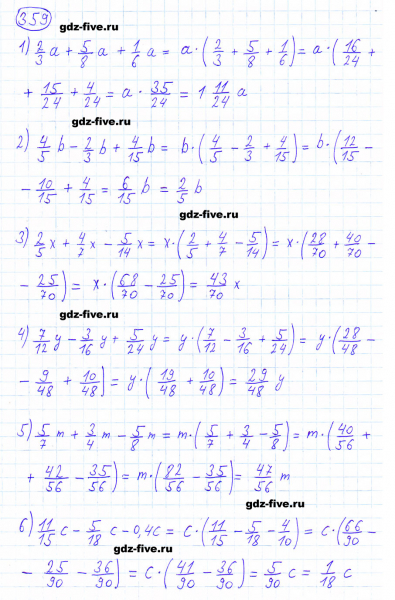 359
gdz-five.ru
1) 2/3 a + 5/8 a + 1/6 a = a·(2/3 + 5/8 + 1/6) = a·(16/24 +
+ 15/24 + 4/24 = a · 35/24 = 1 11/24 a
gdz-five.ru
2) 4/5 b - 2/3 b + 4/15 b = b·(4/5 - 2/3 + 4/15) = b·(12/15 -
- 10/15 + 4/15 = 6/15 b = 2/5 b
gdz-five.ru
3) 2/5 x + 4/7 x - 5/14 x = x·(2/5 + 4/7 - 5/14) = x·(28/70 + 40/70 -
- 25/70) = x·(68/70 - 25/70) = 43/70 x
gdz-five.ru
4) 7/12 y - 3/16 y + 5/24 y = y·(7/12 - 3/16 + 5/24) = y·(28/48 -
- 9/48 + 10/48) = y·(19/48 + 10/48) = 29/48 y
5) 5/7 m + 3/4 m - 5/8 m = m·(5/7 + 3/4 - 5/8) = m·(40/56 +
+ 42/56 - 35/56) = m·(82/56 - 35/56) = 47/56 m
gdz-five.ru
6) 11/15 c - 5/18 c - 0,4c = c·(11/15 - 5/18 - 4/10) = c·(66/90 -
gdz-five.ru
- 25/90 - 36/90) = c·(41/90 - 36/90) = 5/90 c = 1/18 c
gdz-five.ru